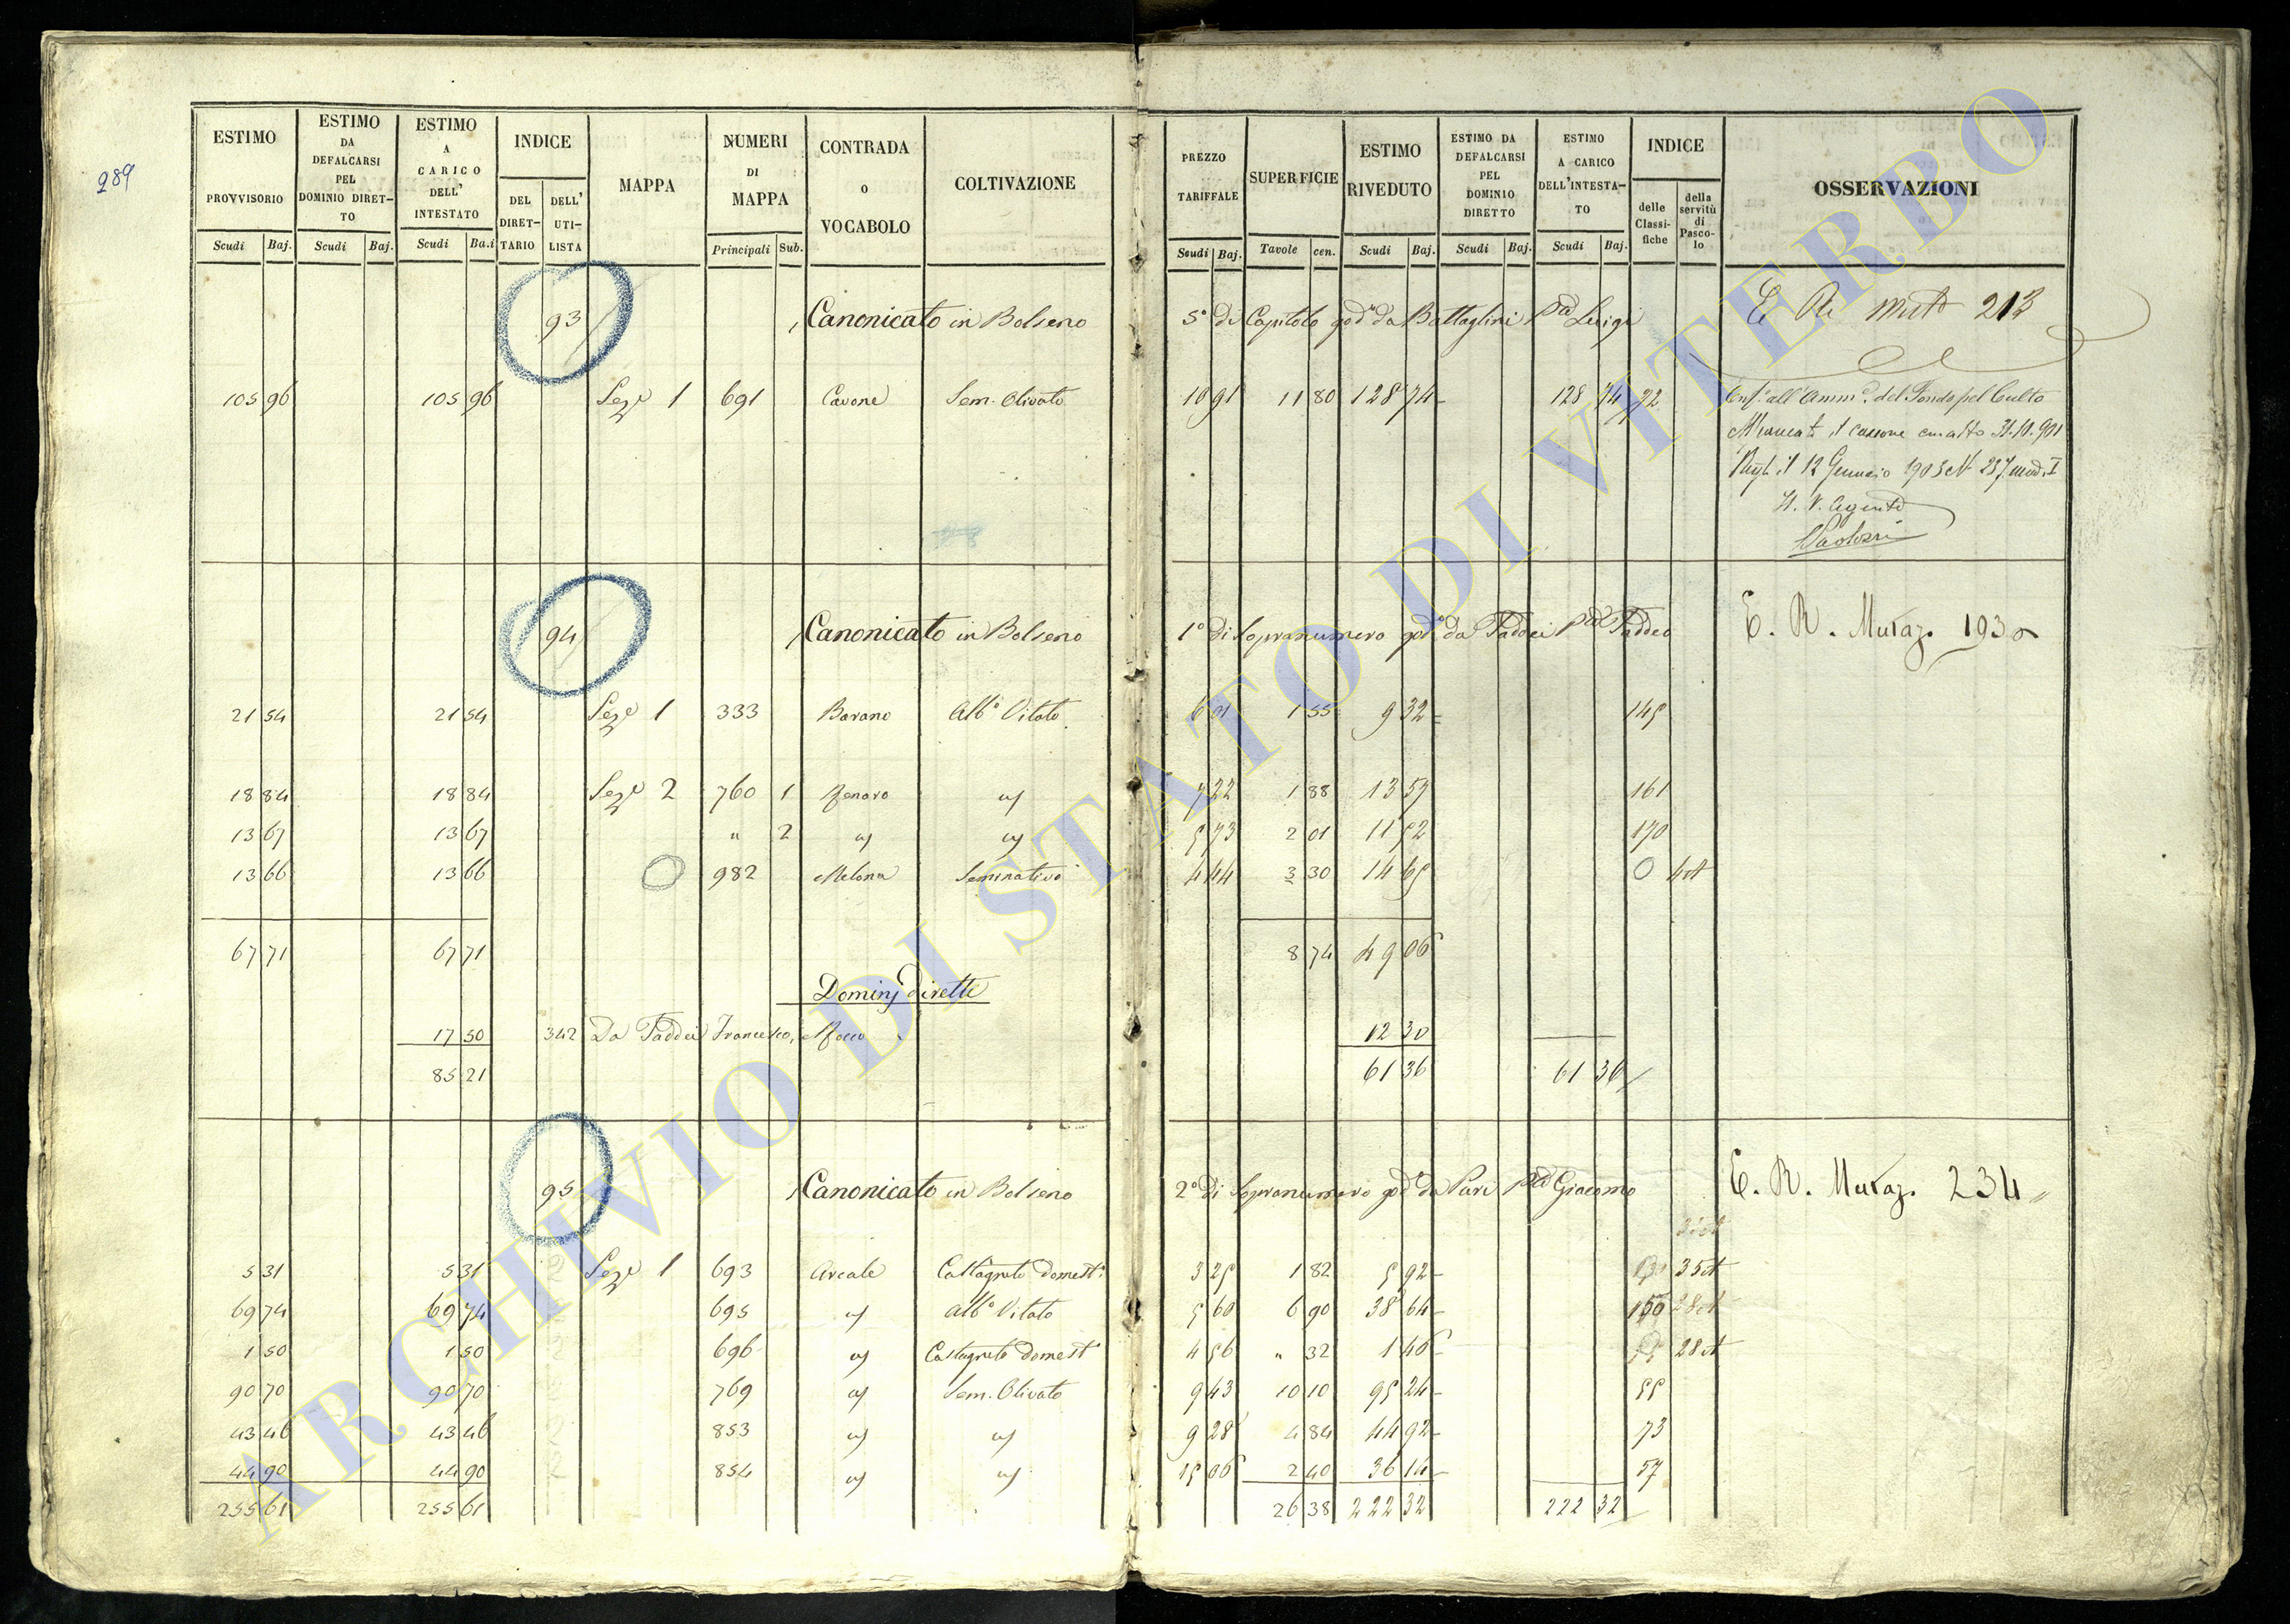 289
ESTIMO PROVVISORIO
Scudi Baj.
ESTIMO DA DEFALCARSI PEL DOMINIO DIRETTO
Scudi Baj.
ESTIMO A CARICO DELL' INTESTATO
Scudi Ba.i
INDICE
DEL DIRETTARIO
DELL' UTILISTA
MAPPA
NUMERI DI MAPPA
Principali Sub.
CONTRADA O VOCABOLO
COLTIVAZIONE
PREZZO TARIFFALE
Scudi Baj.
SUPERFICIE
Tavole cen.
ESTIMO RIVEDUTO
Scudi Baj.
ESTIMO DA DEFALCARSI PEL DOMINIO DIRETTO
Scudi Baj.
ESTIMO A CARICO DELL'INTESTATO
Scudi Baj.
INDICE
delle Classifiche
della servitù di Pascolo
OSSERVAZIONI
93 Canonicato in Bolseno 5° di Capitolo god° da Battaglini Luigi 213
105 96 105 96 Seze 1 691 Cavone Sem. Olivato 10 91 11 80 128 74 128 74 72 all'Amm. del Fondo pel Culto
31.10.901
il 12 Gennaio 1903 N 237 mod. I
Agente
94 Canonicato in Bolseno 1° di Sopranumero god° da Taddei Taddeo E. R. Mutaz. 193
21 54 21 54 Seze 1 333 Barano Alb° Vitato 6 01 1 55 9 32 145
18 84 18 84 Seze 2 760 1 1 88 13 59 161
13 67 13 67 " 2 5 73 2 01 11 52 170
13 66 13 66 982 Melona Seminativo 4 44 3 30 14 65 0
67 71 67 71 8 74 49 06
Dominj diretti
17 50 342 Da Taddei Francesco, 12 30
85 21 61 36 61 36
95 Canonicato in Bolseno 2° di Sopranumero god° da Puri Giacomo E. R. Mutaz. 234
5 31 5 31 Seze 1 693 Arcale Castagneto domest° 3 25 1 82 5 92
69 74 69 74 695 Alb° Vitato 5 60 6 90 38 64
1 50 1 50 696 Castagneto domest° 4 56 " 32 1 46
90 70 90 70 769 Sem. Olivato 9 43 10 10 95 24 55
43 46 43 46 853 9 28 4 84 44 92 73
44 90 44 90 854 15 06 2 40 36 14 57
255 61 255 61 26 38 222 32 222 32
ARCHIVIO DI STATO DI VITERBO